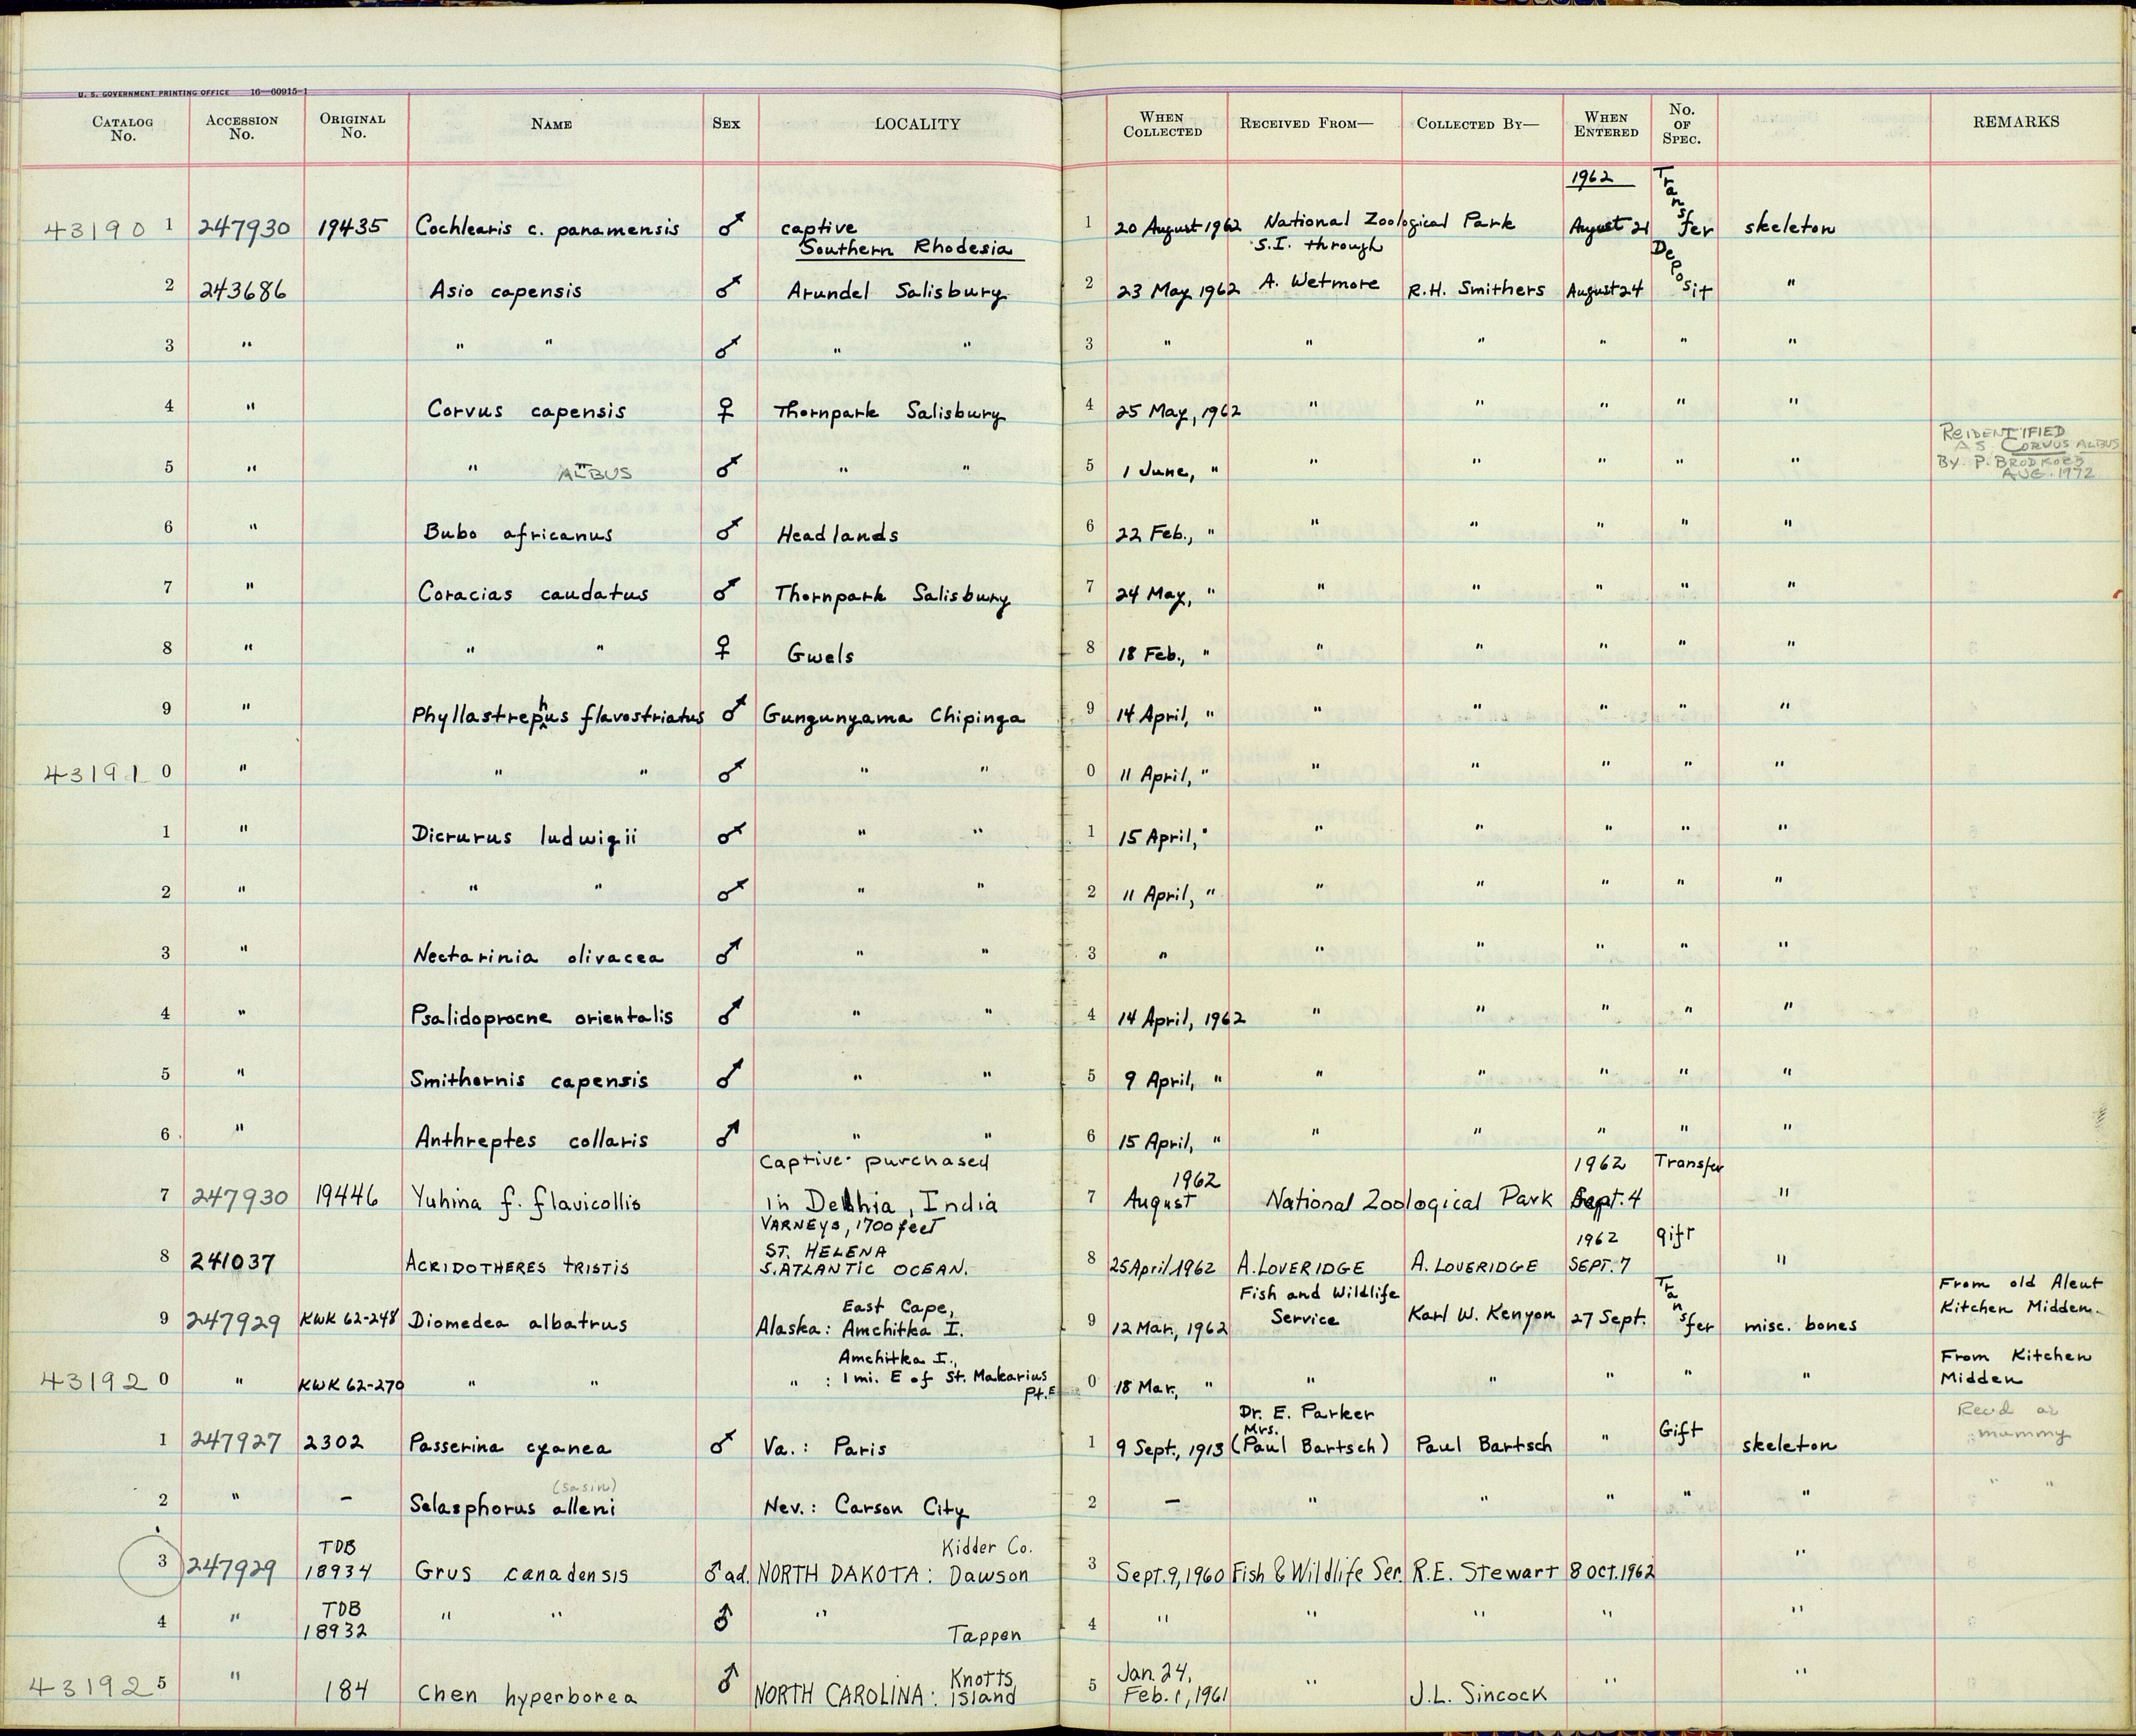 U. S. GOVERNMENT PRINTING OFFICE 16—60915-1
CATALOG No. ACCESSION No. ORIGINAL No. NAME SEX LOCALITY WHEN COLLECTED RECEIVED FROM— COLLECTED BY— WHEN ENTERED No. OF SPEC. REMARKS
1962
43190 1 247930 19435 Cochlearis c. panamensis ♂ captive 1 20 August 1962 National Zoological Park August 21 Transfer skeleton
Southern Rhodesia S.I. through
2 243686 Asio capensis ♂ Arundel Salisbury 2 23 May 1962 A. Wetmore R.H. Smithers August 24 Deposit "
3 " " " ♂ " " 3 " " " " " "
4 " Corvus capensis ♀ Thornpark Salisbury 4 25 May, 1962 " " " " "
5 " " " ALBUS ♂ " " 5 1 June, " " " " " " REIDENTIFIED AS CORVUS ALBUS BY P. BRODKORB AUG. 1972
6 " Bubo africanus ♂ Headlands 6 22 Feb., " " " " " "
7 " Coracias caudatus ♂ Thornpark Salisbury 7 24 May, " " " " " "
8 " " " ♀ Gwels 8 18 Feb., " " " " " "
9 " Phyllastrephus flavostriatus ♂ Gungunyama Chipinga 9 14 April, " " " " " "
43191 0 " " " ♂ " " 0 11 April, " " " " " "
1 " Dicrurus ludwigii ♂ " " 1 15 April, " " " " " "
2 " " " ♂ " " 2 11 April, " " " " " "
3 " Nectarinia olivacea ♂ " " 3 " " " " " "
4 " Psalidoprocne orientalis ♂ " " 4 14 April, 1962 " " " " "
5 " Smithornis capensis ♂ " " 5 9 April, " " " " " "
6 " Anthreptes collaris ♂ " " 6 15 April, " " " " " "
Captive purchased 1962 1962 Transfer
7 247930 19446 Yuhina f. flavicollis in Delhia, India 7 August National Zoological Park Sept. 4 "
VARNEYS, 1700 feet
ST. HELENA 1962 gift
8 241037 ACRIDOTHERES TRISTIS S. ATLANTIC OCEAN. 8 25 April 1962 A. LOVERIDGE A. LOVERIDGE SEPT. 7 "
East Cape, Fish and Wildlife From old Aleut
9 247929 KWK 62-248 Diomedea albatrus Alaska: Amchitka I. 9 12 Mar., 1962 Service Karl W. Kenyon 27 Sept. Transfer misc. bones Kitchen Midden.
Amchitka I., From Kitchen
43192 0 " KWK 62-270 " " " : 1 mi. E of St. Makarius Pt. E 0 18 Mar., " " " " " " Midden
Dr. E. Parker Recd as
1 247927 2302 Passerina cyanea ♂ Va.: Paris 1 9 Sept., 1913 (Mrs. Paul Bartsch) Paul Bartsch " Gift skeleton mummy
(sasin)
2 " — Selasphorus alleni Nev.: Carson City 2 — " " " " " " "
TDB Kidder Co.
3 247929 18934 Grus canadensis ♂ ad. NORTH DAKOTA: Dawson 3 Sept. 9, 1960 Fish & Wildlife Ser. R.E. Stewart 8 OCT. 1962 "
TDB
4 " 18932 " " ♂ " Tappen 4 " " " " "
Knotts Jan. 24,
43192 5 " 184 Chen hyperborea ♂ NORTH CAROLINA: Island 5 Feb. 1, 1961 " J.L. Sincock " "